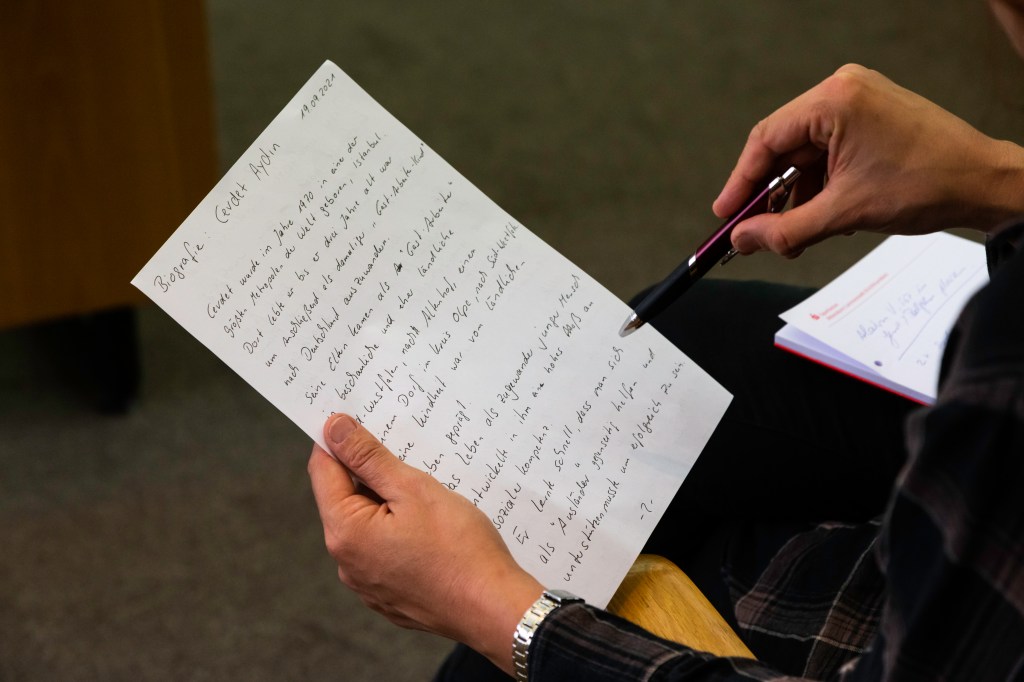 19.09.2021
Biografie: Cevdet Aydin
Cevdet wurde im Jahre 1970 in eine der
größten Metropolen der Welt geboren, Istanbul.
Dort lebte er bis er drei Jahre alt war
um anschließend als damaliger "Gast-Arbeiter-Kind"
nach Deutschland auszuwandern.
Seine Eltern kamen als "Gast-Arbeiter"
beschauliche und eher ländliche
-Westfalen nach Altenhof, einen
einem Dorf im Kreis Olpe, nach Südwestfalen.
eine Kindheit war vom ländlichen
eben geprägt!
Das Leben als zugewanderter junger Mensch
entwickelte in ihm ein hohes Maß an
sozialer Kompetenz.
Er lernte schnell, dass man sich
als "Ausländer" gegenseitig helfen und
unterstützen musste um erfolgreich zu sein
-2-